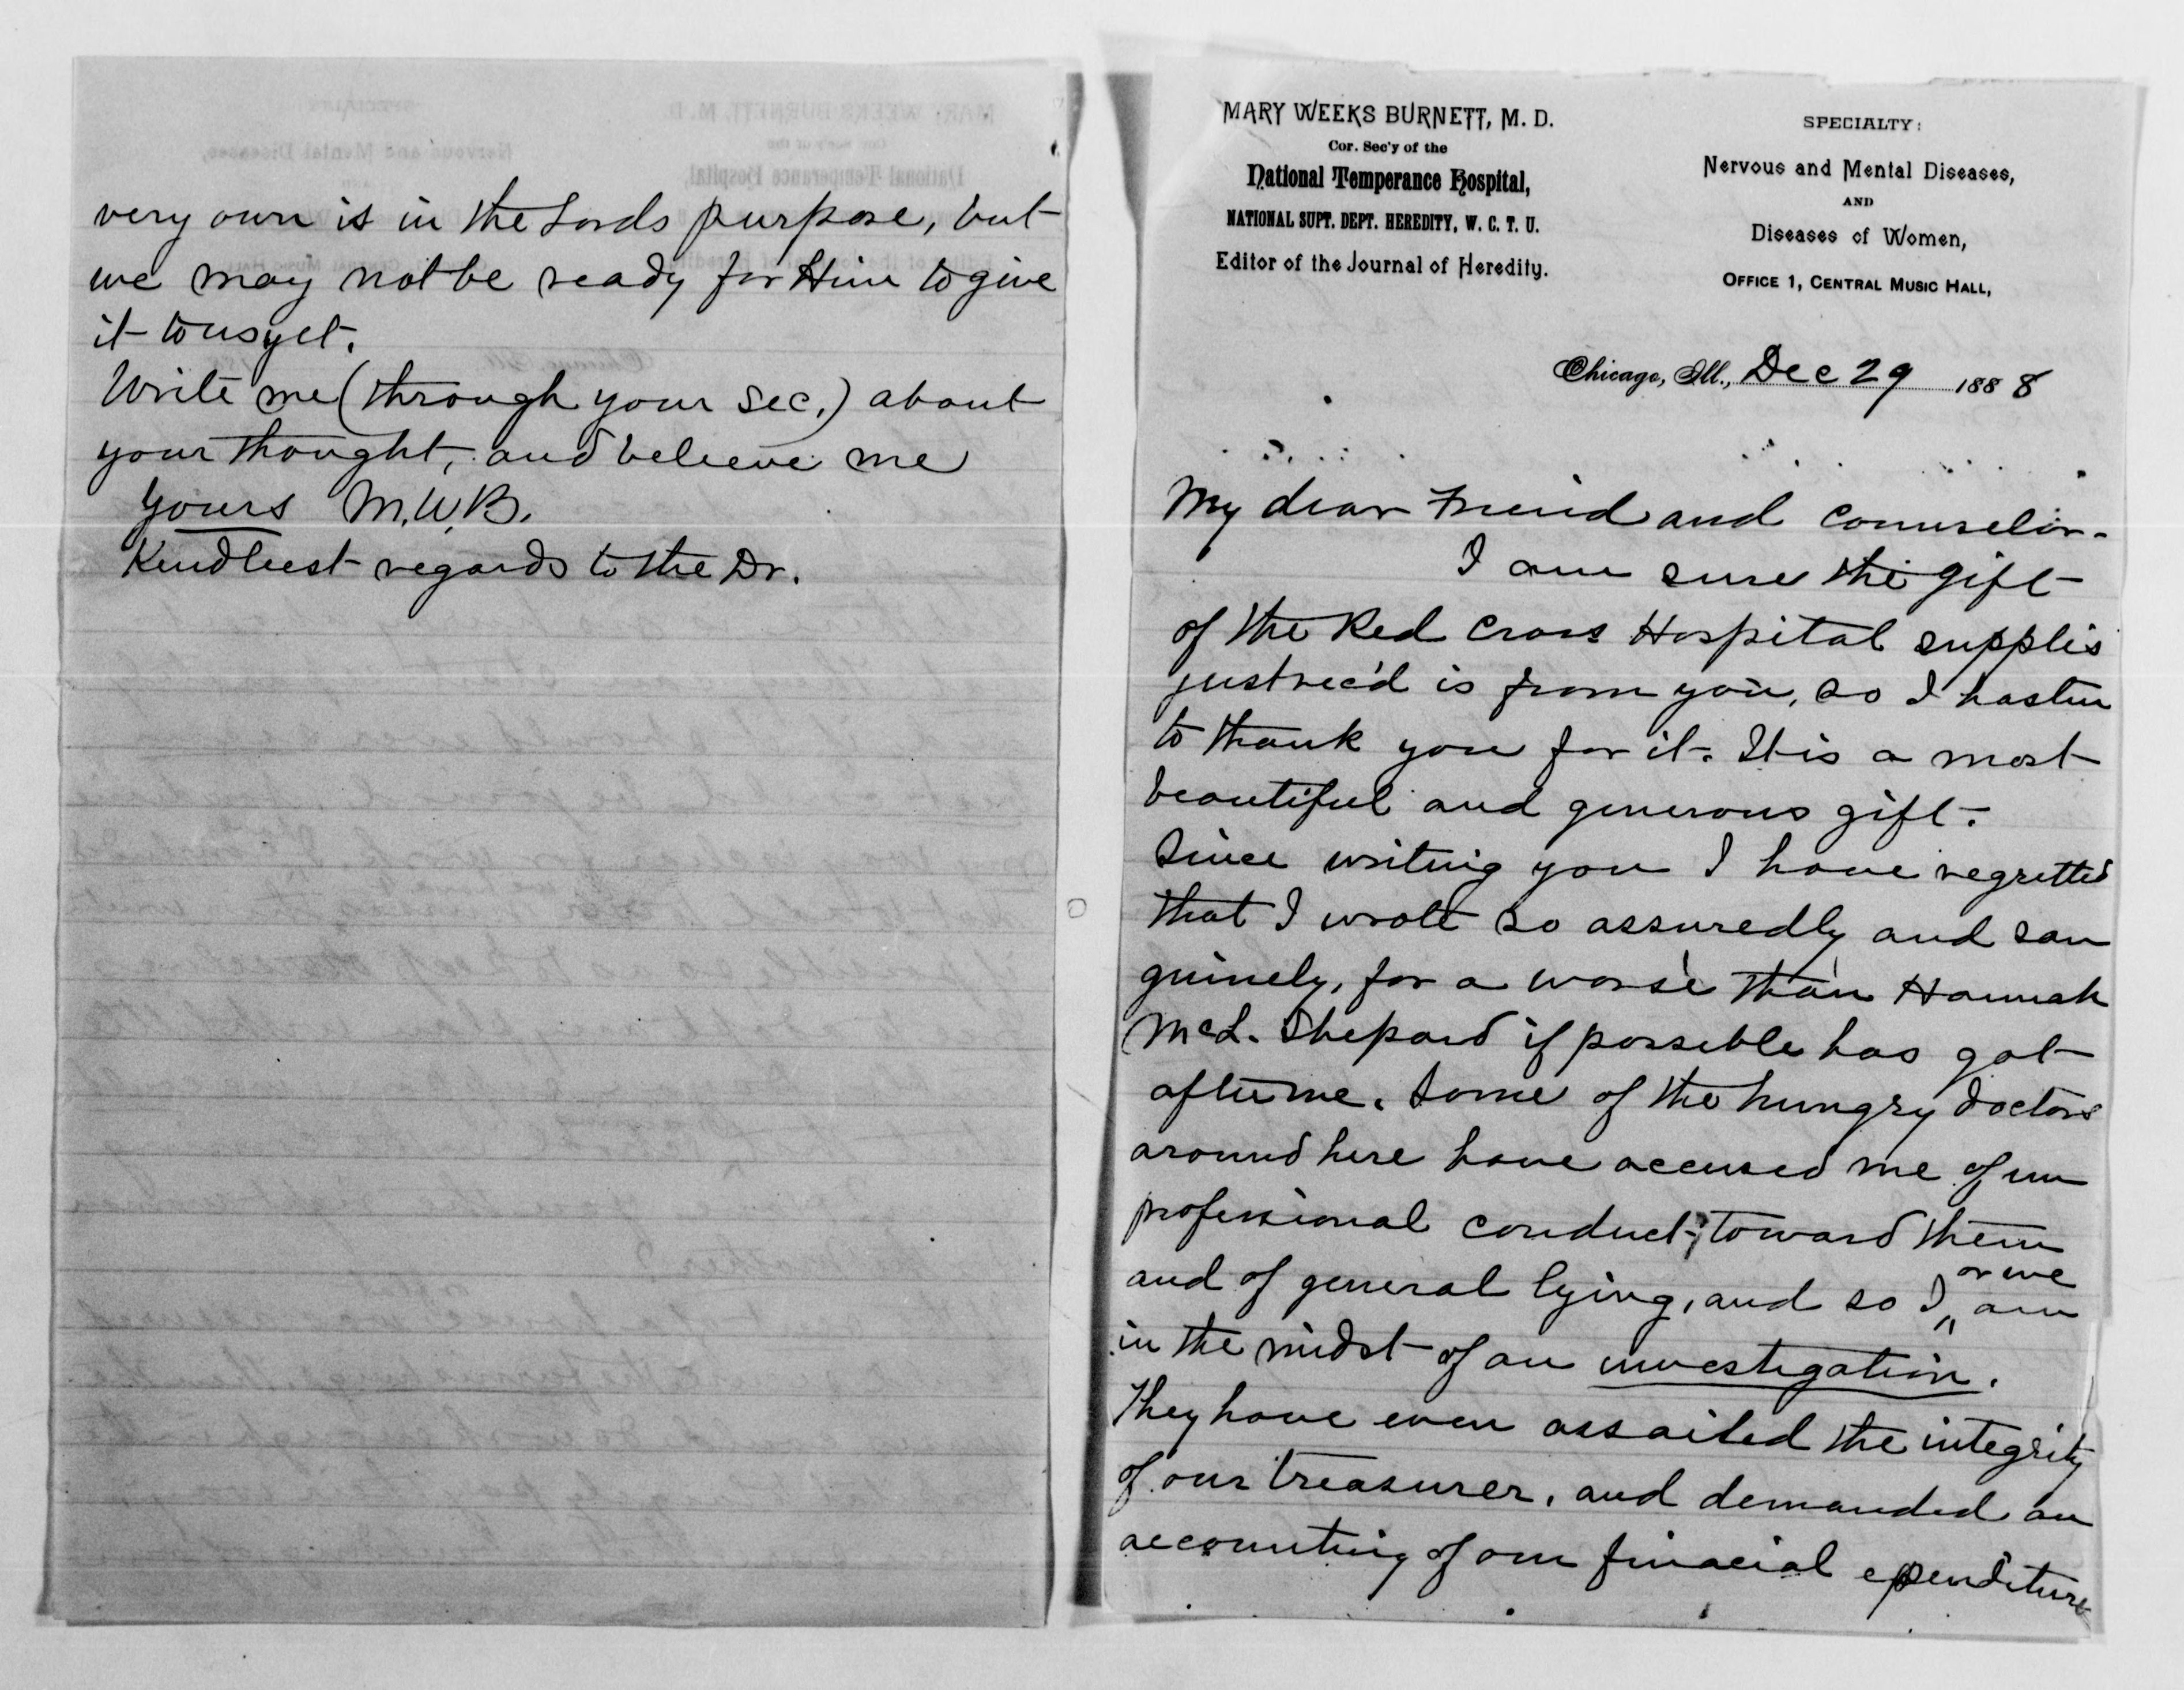 very own is in the Lords purpose, but
we may not be ready for Him to give
it to us yet.
Write me (through your Sec.) about
your thought, and believe me
Yours M.W.B.
Kindliest regards to the Dr.
MARY WEEKS BURNETT, M. D.
Cor. Sec'y of the
National Temperance Hospital,
NATIONAL SUPT. DEPT. HEREDITY, W. C. T. U.
Editor of the Journal of Heredity.
SPECIALTY:
Nervous and Mental Diseases,
AND
Diseases of Women,
OFFICE 1, CENTRAL MUSIC HALL,
Chicago, Ill., Dec 29 1888
My dear Friend and counselor.
I am sure the gift
of the Red Cross Hospital supplis
just rec'd is from you, so I hasten
to thank you for it. It is a most
beautiful and generous gift.
Since writing you I have regretted
that I wrote so assuredly and san
guinely, for a worse than Hannah
McL. Shepard if possible has got
after me. Some of the hungry doctors
around here have accused me of un
professional conduct toward them
and of general lying, and so I or we am
in the midst of an investigation.
They have even assailed the integrity
of our treasurer, and demanded an
accounting of our finacial ependiture